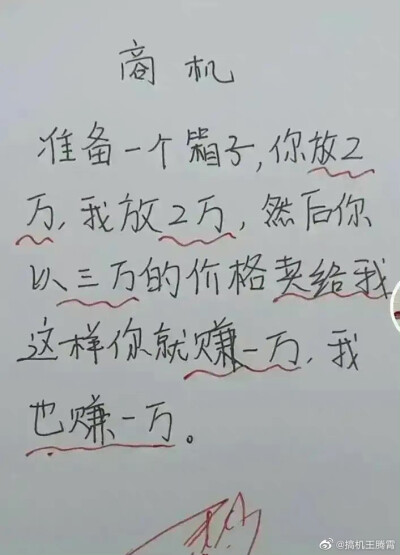 商机
准备一个箱子，你放2
万，我放2万，然后你
以三万的价格卖给我
这样你就赚一万，我
也赚一万。
@搞机王腾霄